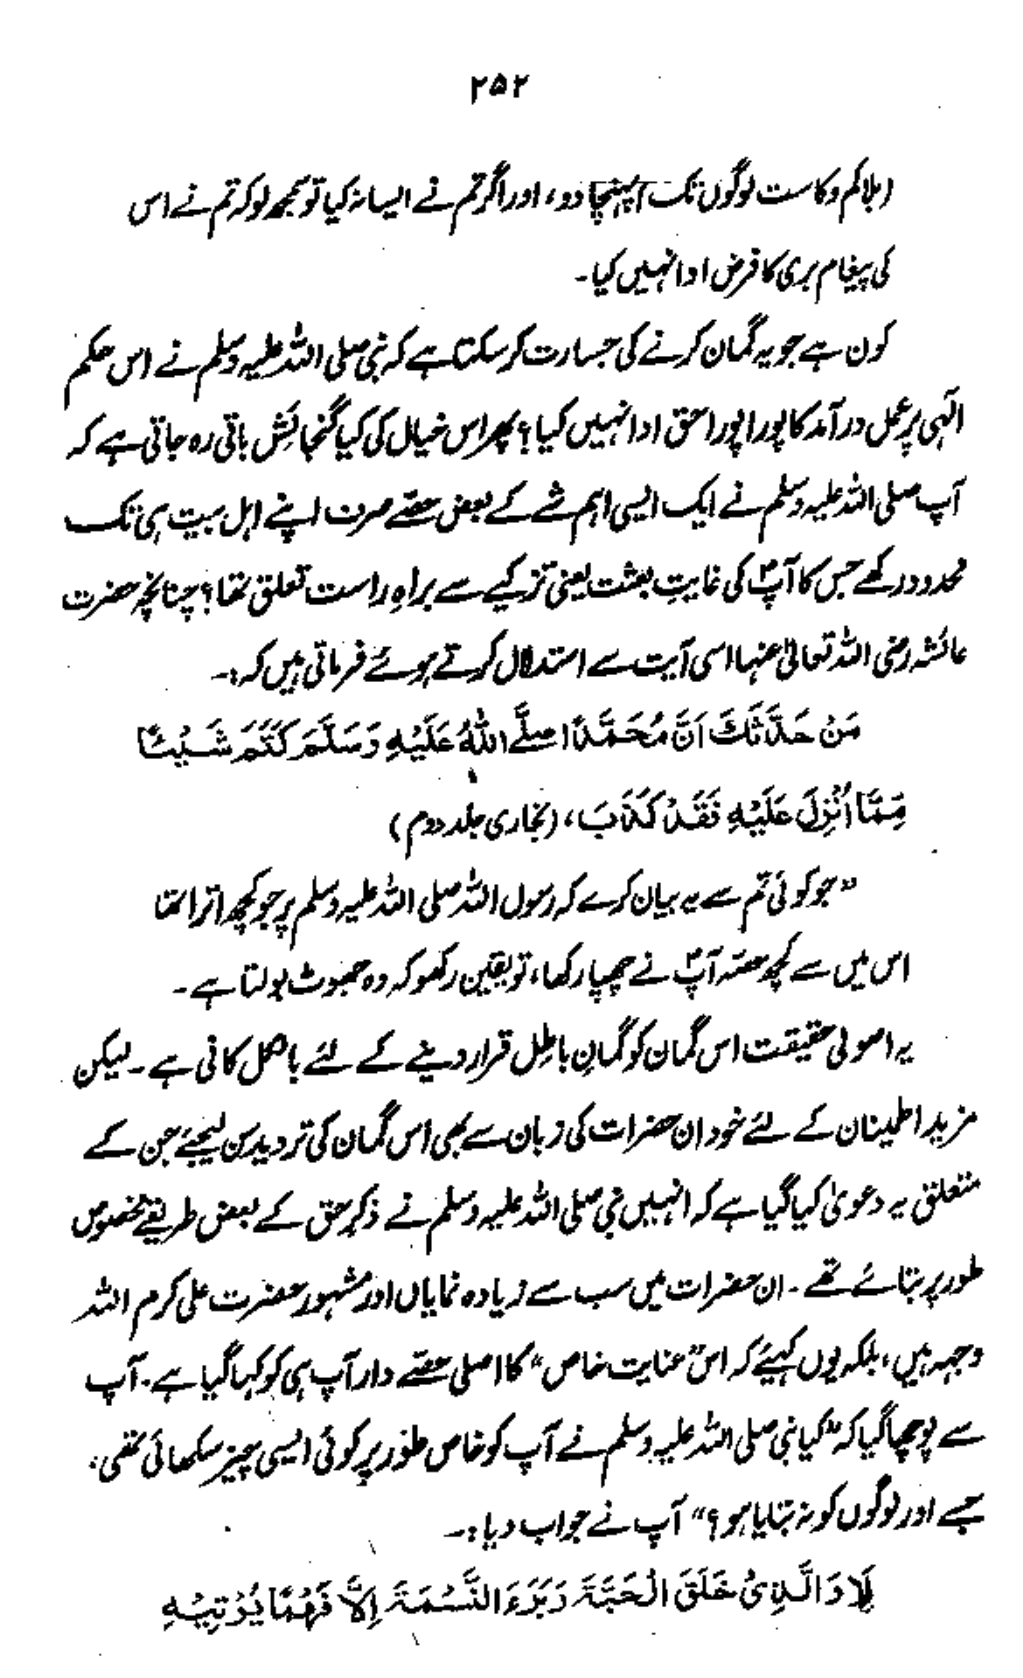 ۲۵۲
(بلا کم و کاست لوگوں تک) پہنچا دو، اور اگر تم نے ایسا نہ کیا تو سمجھ لو کہ تم نے اس
کی پیغام بری کا فرض ادا نہیں کیا۔
کون ہے جو یہ گمان کرنے کی جسارت کر سکتا ہے کہ نبی صلی اللہ علیہ وسلم نے اس حکم
الٰہی پر عمل درآمد کا پورا پورا حق ادا نہیں کیا؟ پھر اس خیال کی کیا گنجائش باقی رہ جاتی ہے کہ
آپ صلی اللہ علیہ وسلم نے ایک ایسی اہم شے کے بعض حصّے صرف اپنے اہل بیت ہی تک
محدود رکھے جس کا آپؐ کی غایتِ بعثت یعنی تزکیے سے براہِ راست تعلق تھا؟ چنانچہ حضرت
عائشہ رضی اللہ تعالیٰ عنہا اسی آیت سے استدلال کرتے ہوئے فرماتی ہیں کہ:۔
مَنْ حَدَّثَكَ اَنَّ مُحَمَّدًا صلے اللهُ عَلَيْهِ وَسَلَّمَ كَتَمَ شَيْئًا
مِّمَّا اُنْزِلَ عَلَيْهِ فَقَدْ كَذَبَ، (بخاری جلد دوم)
”جو کوئی تم سے یہ بیان کرے کہ رسول اللہ صلی اللہ علیہ وسلم پر جو کچھ اترا تھا
اس میں سے کچھ حصّہ آپؐ نے چھپا رکھا، تو یقین رکھو کہ وہ جھوٹ بولتا ہے۔
یہ اصولی حقیقت اس گمان کو گمانِ باطل قرار دینے کے لئے بالکل کافی ہے۔ لیکن
مزید اطمینان کے لئے خود ان حضرات کی زبان سے بھی اس گمان کی تردید سن لیجئے جن کے
متعلق یہ دعویٰ کیا گیا ہے کہ انہیں نبی صلی اللہ علیہ وسلم نے ذکرِ حق کے بعض طریقے مخصوص
طور پر بتائے تھے۔ ان حضرات میں سب سے زیادہ نمایاں اور مشہور حضرت علی کرم اللہ
وجہہ ہیں، بلکہ یوں کہیئے کہ اس ”عنایت خاص“ کا اصلی حصّے دار آپ ہی کو کہا گیا ہے۔ آپ
سے پوچھا گیا کہ ”کیا نبی صلی اللہ علیہ وسلم نے آپ کو خاص طور پر کوئی ایسی چیز سکھائی تھی،
جسے اور لوگوں کو نہ بتایا ہو؟“ آپ نے جواب دیا:۔
لَا وَالَّذِیْ خَلَقَ الْحَبَّةَ وَبَرَءَ النَّسْمَةَ اِلَّا فَهْمًا يُؤْتِيْهِ